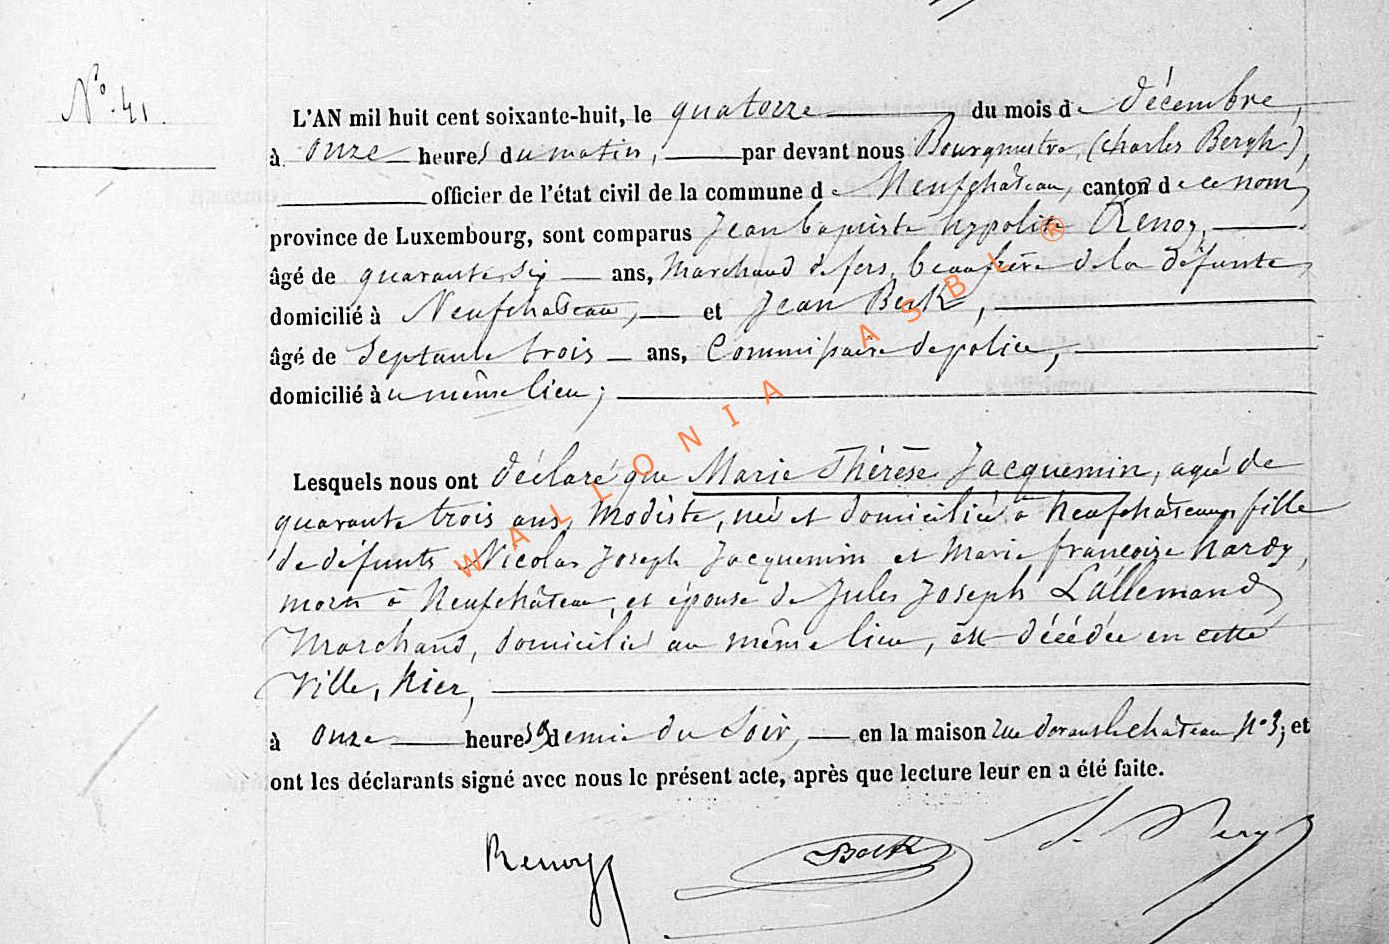 N° 41.
L'AN mil huit cent soixante-huit, le quatorze du mois de décembre,
à onze heures du matin, par devant nous Bourgmestre, (Charles Bergh),
officier de l'état civil de la commune de Neufchâteau, canton de ce nom,
province de Luxembourg, sont comparus Jean baptiste hypolite Renoy,
âgé de quarante six ans, Marchand de fers, beaufrère de la défunte,
domicilié à Neufchateau, et Jean Beck,
âgé de Septante trois ans, Commissaire de police,
domicilié à u même lieu;
Lesquels nous ont déclaré que Marie Thérèse Jacquemin, agée de
quarante trois ans, Modiste, née et domiciliée à Neufchâteau, fille
de défunts Nicolas Joseph Jacquemin et Marie françoise hardy,
morts à Neufchâteau, et épouse de Jules Joseph Lallemand,
Marchand, domicilié au même lieu, est décédée en cette
ville, hier,
à onze heures & demie du Soir, en la maison rue devant le chateau N° 3; et
ont les déclarants signé avec nous le présent acte, après que lecture leur en a été faite.
Renoy Beck
WALLONIA ASBL ®